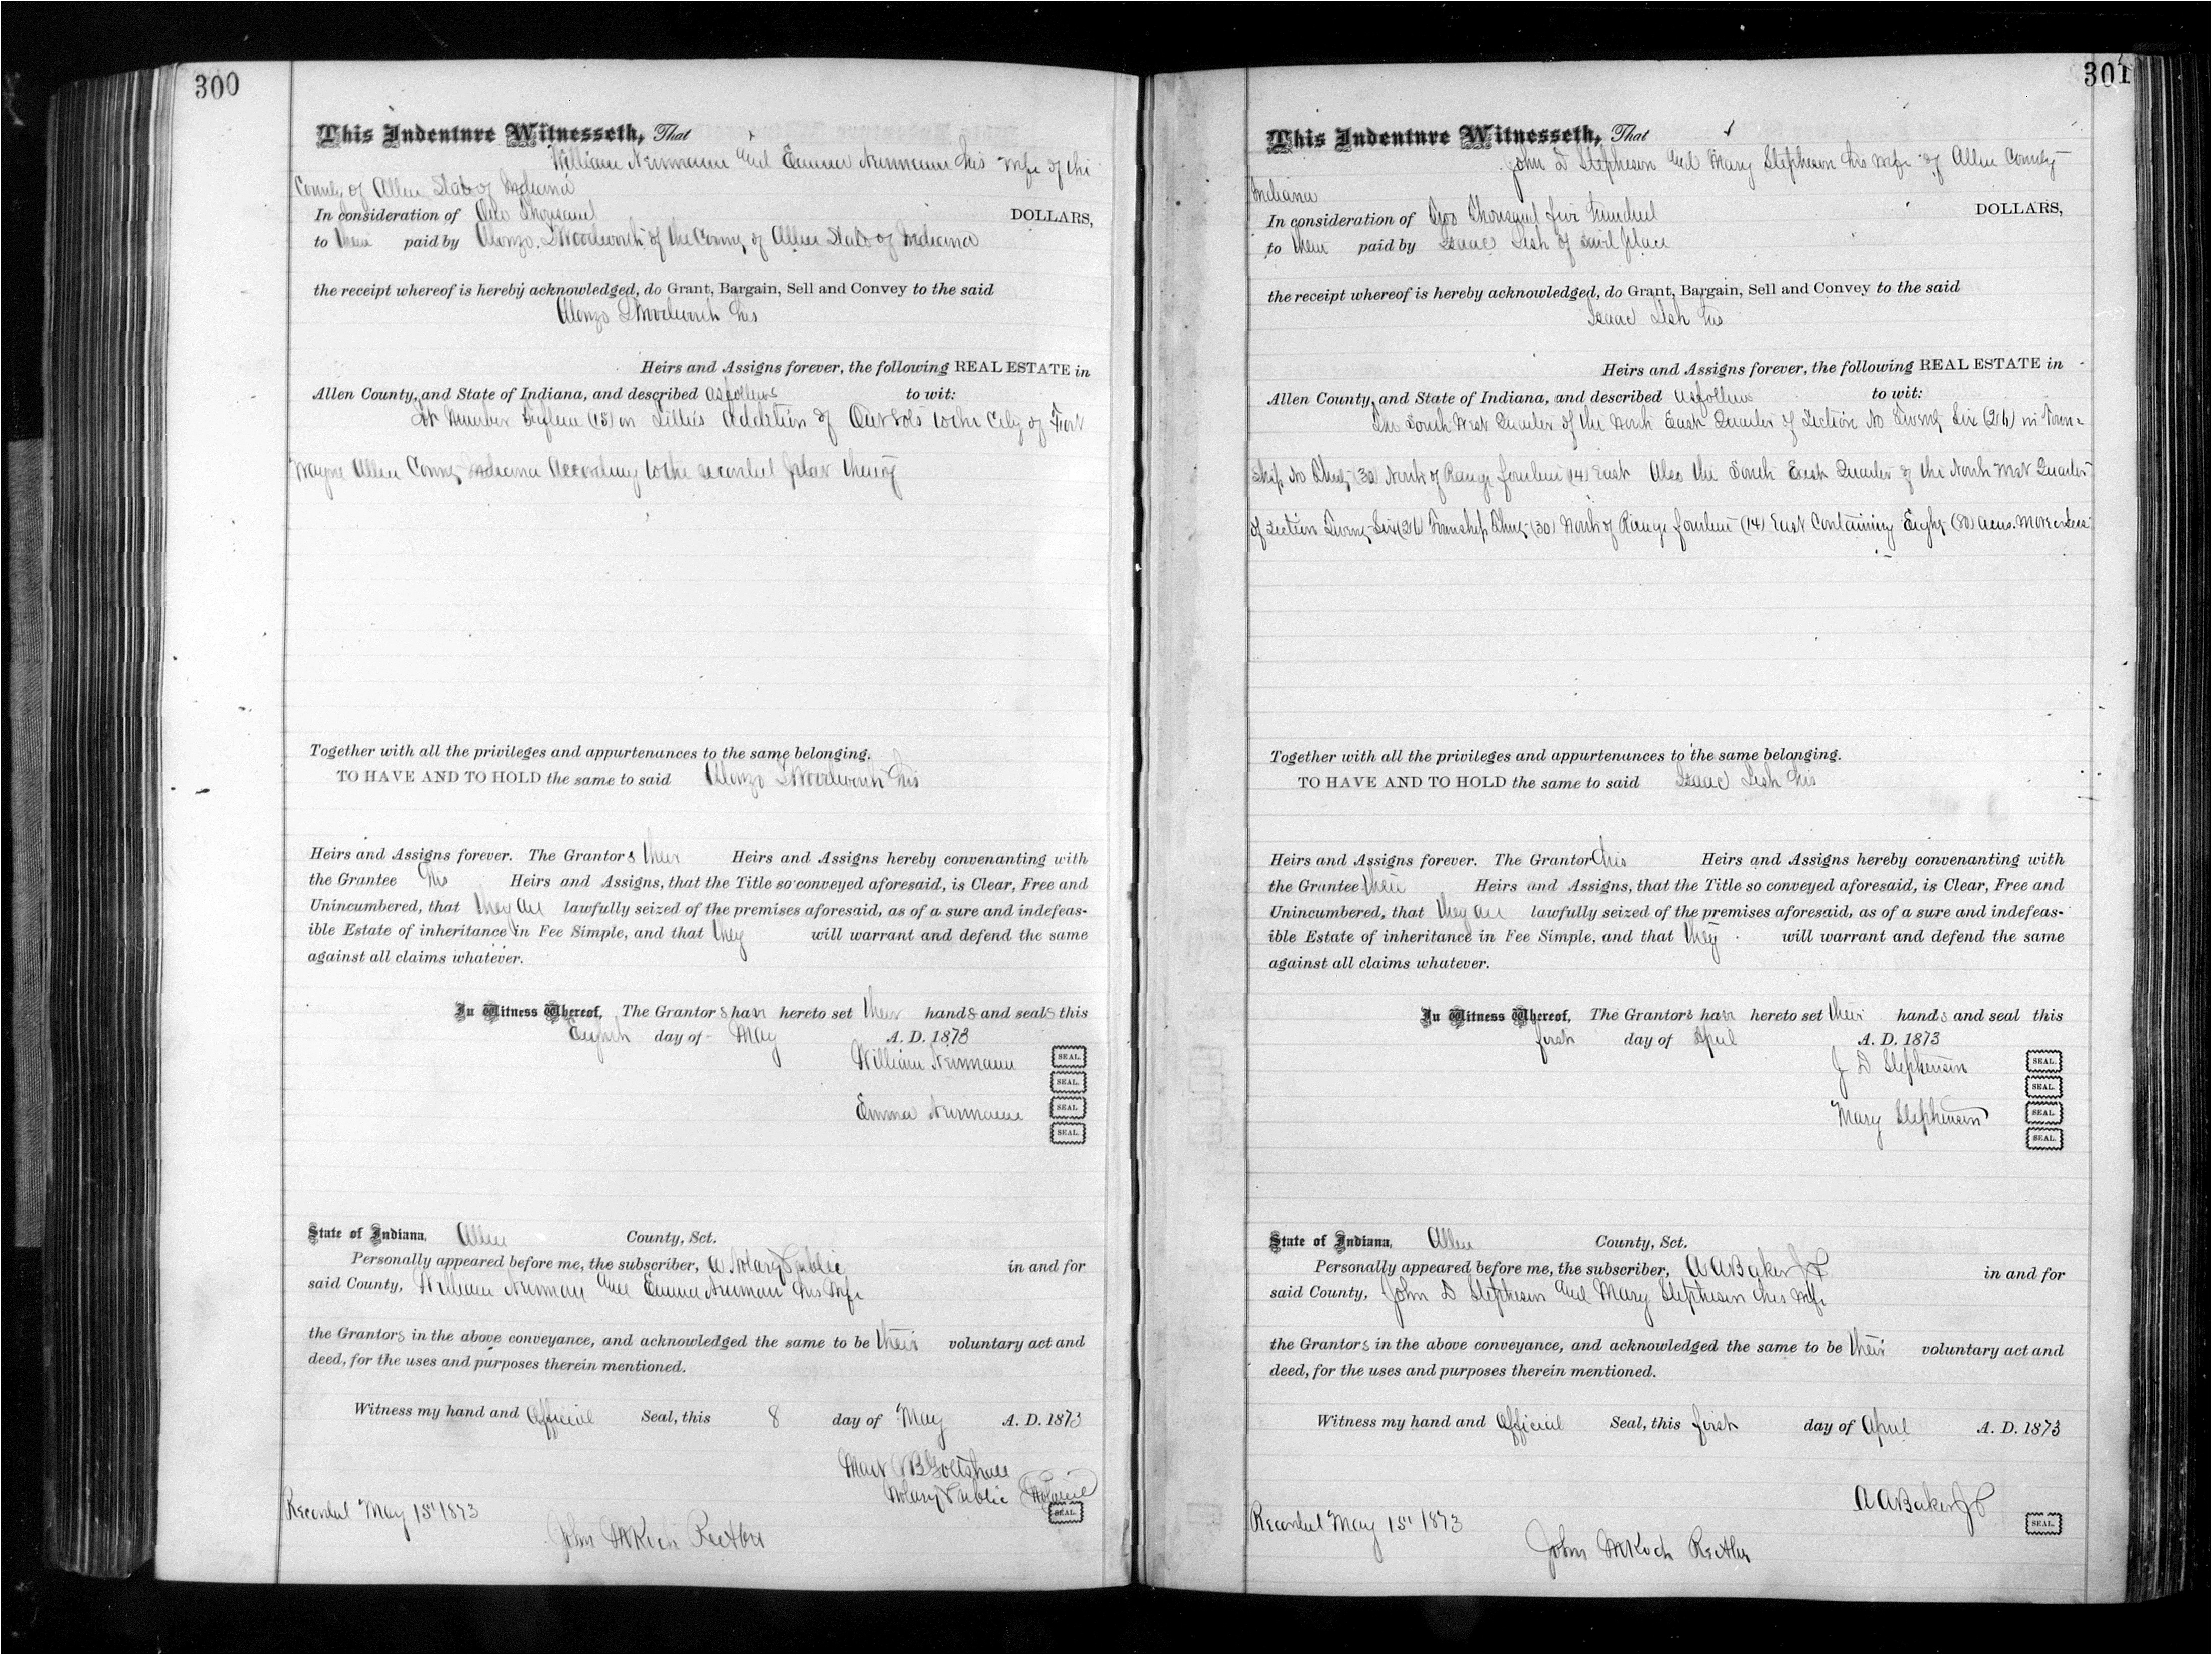 300
This Indenture Witnesseth, That
William Neirmann and Emma Neirmann his wife of the
County of Allen State of Indiana
In consideration of One Thousand DOLLARS,
to their paid by Alonzo. L Woodworth of the County of Allen State of Indiana
the receipt whereof is hereby acknowledged, do Grant, Bargain, Sell and Convey to the said
Alonzo L Woodworth his
Heirs and Assigns forever, the following REAL ESTATE in
Allen County, and State of Indiana, and described as follows to wit:
Lot Number Fifteen (15) in Lillie's addition of Out Lots to the City of Fort
Wayne Allen County Indiana According to the recorded plat thereof
Together with all the privileges and appurtenances to the same belonging.
TO HAVE AND TO HOLD the same to said Alonzo L Woodworth his
Heirs and Assigns forever. The Grantors their Heirs and Assigns hereby convenanting with
the Grantee his Heirs and Assigns, that the Title so conveyed aforesaid, is Clear, Free and
Unincumbered, that they are lawfully seized of the premises aforesaid, as of a sure and indefeas-
ible Estate of inheritance in Fee Simple, and that they will warrant and defend the same
against all claims whatever.
In Witness Whereof, The Grantors have hereto set their hands and seals this
Eighth day of May A. D. 1873
William Neirmann SEAL.
SEAL.
Emma Neirmann SEAL.
SEAL.
State of Indiana, Allen County, Sct.
Personally appeared before me, the subscriber, a Notary Public in and for
said County, William Neirman and Emma Neirman his wife
the Grantors in the above conveyance, and acknowledged the same to be their voluntary act and
deed, for the uses and purposes therein mentioned.
Witness my hand and Official Seal, this 8 day of May A. D. 1873
Mart V B Gotshall
Notary Public
SEAL.
Recorded May 15" 1873
John M Koch Recorder
301
This Indenture Witnesseth, That
John D Stepheson and Mary Stepheson his wife of Allen County
Indiana
In consideration of Two Thousand five hundred DOLLARS,
to them paid by Isaac Lesh of said place
the receipt whereof is hereby acknowledged, do Grant, Bargain, Sell and Convey to the said
Isaac Lesh his
Heirs and Assigns forever, the following REAL ESTATE in
Allen County, and State of Indiana, and described as follows to wit:
The South West Quarter of the North East Quarter of Section No Twenty Six (26) in Town-
ship No Thirty (30) North of Range fourteen (14) East Also the South East Quarter of the North West Quarter
of Section Twenty-Six (26 Township Thirty (30) North of Range fourteen (14) East Containing Eighty (80) acres. More or Less
Together with all the privileges and appurtenances to the same belonging.
TO HAVE AND TO HOLD the same to said Isaac Lesh his
Heirs and Assigns forever. The Grantor his Heirs and Assigns hereby convenanting with
the Grantee their Heirs and Assigns, that the Title so conveyed aforesaid, is Clear, Free and
Unincumbered, that they are lawfully seized of the premises aforesaid, as of a sure and indefeas-
ible Estate of inheritance in Fee Simple, and that they will warrant and defend the same
against all claims whatever.
In Witness Whereof, The Grantors have hereto set their hands and seal this
first day of April A. D. 1873
J D Stephenson SEAL.
SEAL.
Mary Stephenson SEAL.
SEAL.
State of Indiana, Allen County, Sct.
Personally appeared before me, the subscriber, A A Baker J P in and for
said County, John D Stepheson and Mary Stepheson his wife
the Grantors in the above conveyance, and acknowledged the same to be their voluntary act and
deed, for the uses and purposes therein mentioned.
Witness my hand and Official Seal, this first day of April A. D. 1873
A A Baker J P
SEAL.
Recorded May 15" 1873
John M Koch Recorder